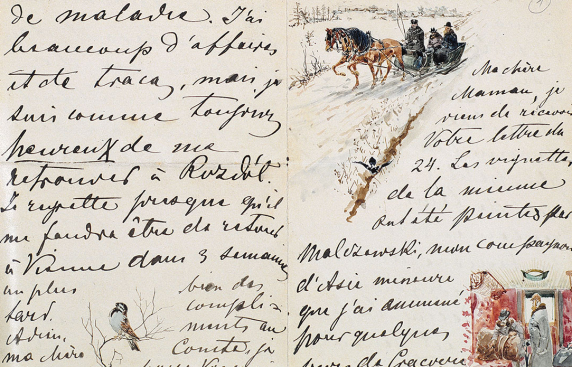 de malade. J'ai
beaucoup d'affaires
et de tracas, mais je
suis comme toujours
heureux de me
retrouver à Rozdół.
Je regrette presque qu'il
me faudra être de retour
à Vienne dans 3 semaines
au plus
tard.
Adieu,
ma chère
bien des
compli-
ments au
Comte, je
Ma chère
Maman, je
viens de recevoir
Votre lettre du
24. Les vignettes
de la mienne
ont été peintes par
Malczewski, mon compagnon
d'Asie mineure
que j'ai emmené
pour quelques
jours de Cracovie